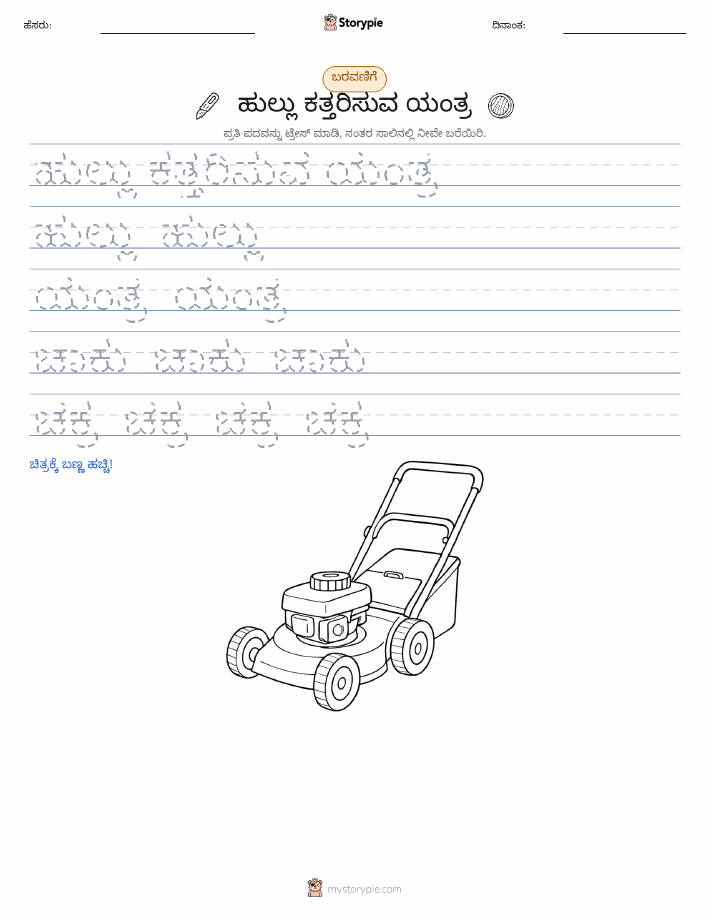 ಹೆಸರು:
Storypie
ದಿನಾಂಕ:
ಬರವಣಿಗೆ
ಹುಲ್ಲು ಕತ್ತರಿಸುವ ಯಂತ್ರ
ಪ್ರತಿ ಪದವನ್ನು ಟ್ರೇಸ್ ಮಾಡಿ, ನಂತರ ಸಾಲಿನಲ್ಲಿ ನೀವೇ ಬರೆಯಿರಿ.
ಹುಲ್ಲು ಕತ್ತರಿಸುವ ಯಂತ್ರ
ಹುಲ್ಲು ಹುಲ್ಲು
ಯಂತ್ರ ಯಂತ್ರ
ಚಾಕು ಚಾಕು ಚಾಕು
ಚಕ್ರ ಚಕ್ರ ಚಕ್ರ ಚಕ್ರ
ಚಿತ್ರಕ್ಕೆ ಬಣ್ಣ ಹಚ್ಚಿ!
mystorypie.com